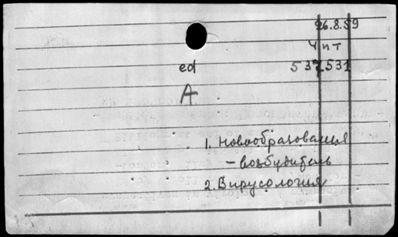 26.8.59
Чит
ed 537531
А
1. Новообразования
– возбудитель
2. Вирусология